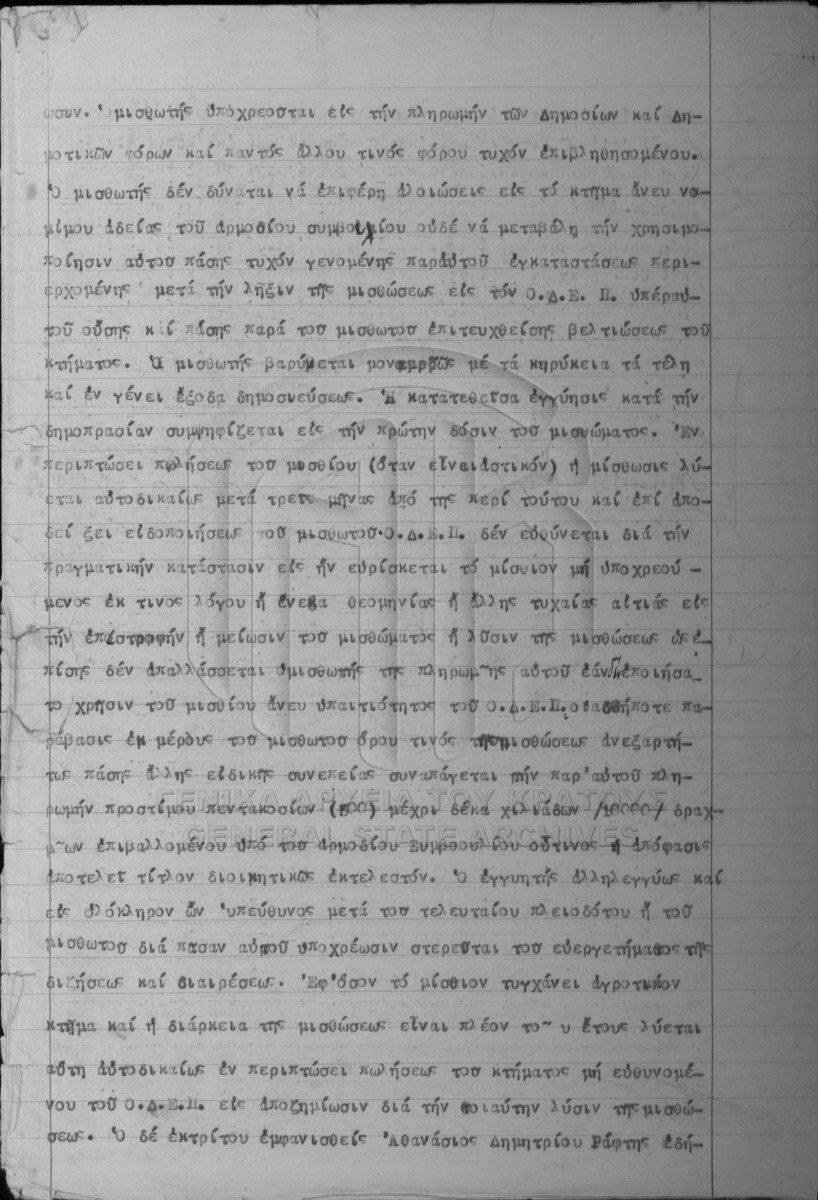 ωσουν. Ὁ μισθωτής ὑποχρεοῦται εἰς τήν πληρωμήν τῶν Δημοσίων καί Δη-
μοτικῶν φόρων καί παντός ἄλλου τινός φόρου τυχόν ἐπιβληθησομένου.
Ὁ μισθωτής δέν δύναται νά ἐπιφέρῃ ἀλοιώσεις εἰς τό κτῆμα ἄνευ νο-
μίμου ἀδείας τοῦ ἁρμοδίου συμβουλίου οὐδέ νά μεταβάλῃ τήν χρησιμο-
ποίησιν αὐτοῦ πάσης τυχόν γενομένης παράὐτοῦ ἐγκαταστάσεως περι-
ερχομένης μετά τήν λῆξιν τῆς μισθώσεως εἰς τόν Ο.Δ.Ε. Π. ὑπέραὐ-
τοῦ οὔσης καί πάσης παρά τοῦ μισθωτοῦ ἐπιτευχθείσης βελτιώσεως τοῦ
κτήματος. Ὁ μισθωτής βαρύνεται μονομερῶς μέ τά κηρύκεια τά τέλη
καί ἐν γένει ἔξοδα δημοσιεύσεως. Ἡ κατατεθεῖσα ἐγγύησις κατά τήν
δημοπρασίαν συμψηφίζεται εἰς τήν πρώτην δόσιν τοῦ μισθώματος. Ἐν
περιπτώσει πωλήσεως τοῦ μισθίου (ὅταν εἶναιἀστικόν) ἡ μίσθωσις λύ-
εται αὐτοδικαίως μετά τρεῖς μῆνας ἀπό τῆς περί τούτου καί ἐπί ἀπο-
δεί ξει εἰδοποιήσεως τοῦ μισθωτοῦ.Ο.Δ.Ε.Π. δέν εὐθύνεται διά τήν
πραγματικήν κατάστασιν εἰς ἥν εὑρίσκεται τό μίσθιον μή ὑποχρεού -
μενος ἐκ τινος λόγου ἤ ἕνεκα θεομηνίας ἤ ἄλλης τυχαίας αἰτιάς εἰς
τήν ἐπιστροφήν ἤ μείωσιν τοῦ μισθώματος ἤ λῦσιν τῆς μισθώσεως ὡς ἐ-
πίσης δέν ἀπαλλάσσεται ὁμισθωτής τῆς πληρωμ~ης αὐτοῦ ἐάν δέν ἐποιήσα_
το χρῆσιν τοῦ μισθίου ἄνευ ὑπαιτιότητος τοῦ Ο.Δ.Ε.Π. οἱαδήποτε πα-
ράβασις ἐκ μέρους τοῦ μισθωτοῦ ὅρου τινός τῆςμισθώσεως ἀνεξαρτή-
τως πάσης ἄλλης εἰδικῆς συνεπείας συναπάγεται τήν παρ'αὐτοῦ πλη-
ρωμήν προστίμου πεντακοσίων (500) μέχρι δέκα χιλιάδων /10000/ δραχ-
μ~ων ἐπιβαλλομένου ὑπό τοῦ ἁρμοδίου Συμβουλίου οὕτινος ἡ ἀπόφασις
ἀποτελεῖ τίτλον διοικητικῶς ἐκτελεστόν. Ὁ ἐγγυητής ἀλληλεγγύως καί
εἰς ὁλόκληρον ὤν ὑπεύθυνος μετά τοῦ τελευταίου πλειοδότου ἤ τοῦ
μισθωτοῦ διά πᾶσαν αὐτοῦ ὑποχρέωσιν στερεῖται τοῦ εὐεργετήματος τῆς
διζήσεως καί διαιρέσεως. Ἐφ'ὅσον τό μίσθιον τυγχάνει ἀγροτικόν
κτῆμα καί ἡ διάρκεια τῆς μισθώσεως εἶναι πλέον το~ υ ἔτους λύεται
αὕτη αὐτοδικαίως ἐν περιπτώσει πωλήσεως τοῦ κτήματος μή εὐθυνομέ-
νου τοῦ Ο.Δ.Ε.Π. εἰς ἀποζημίωσιν διά τήν τοιαύτην λύσιν τῆς μισθώ-
σεως. Ὁ δέ ἐκτρίτου ἐμφανισθείς Ἀθανάσιος Δημητρίου Ράφτης ἐδή-
ΓΕΝΙΚΑ ΑΡΧΕΙΑ ΤΟΥ ΚΡΑΤΟΥΣ
GENERAL STATE ARCHIVES